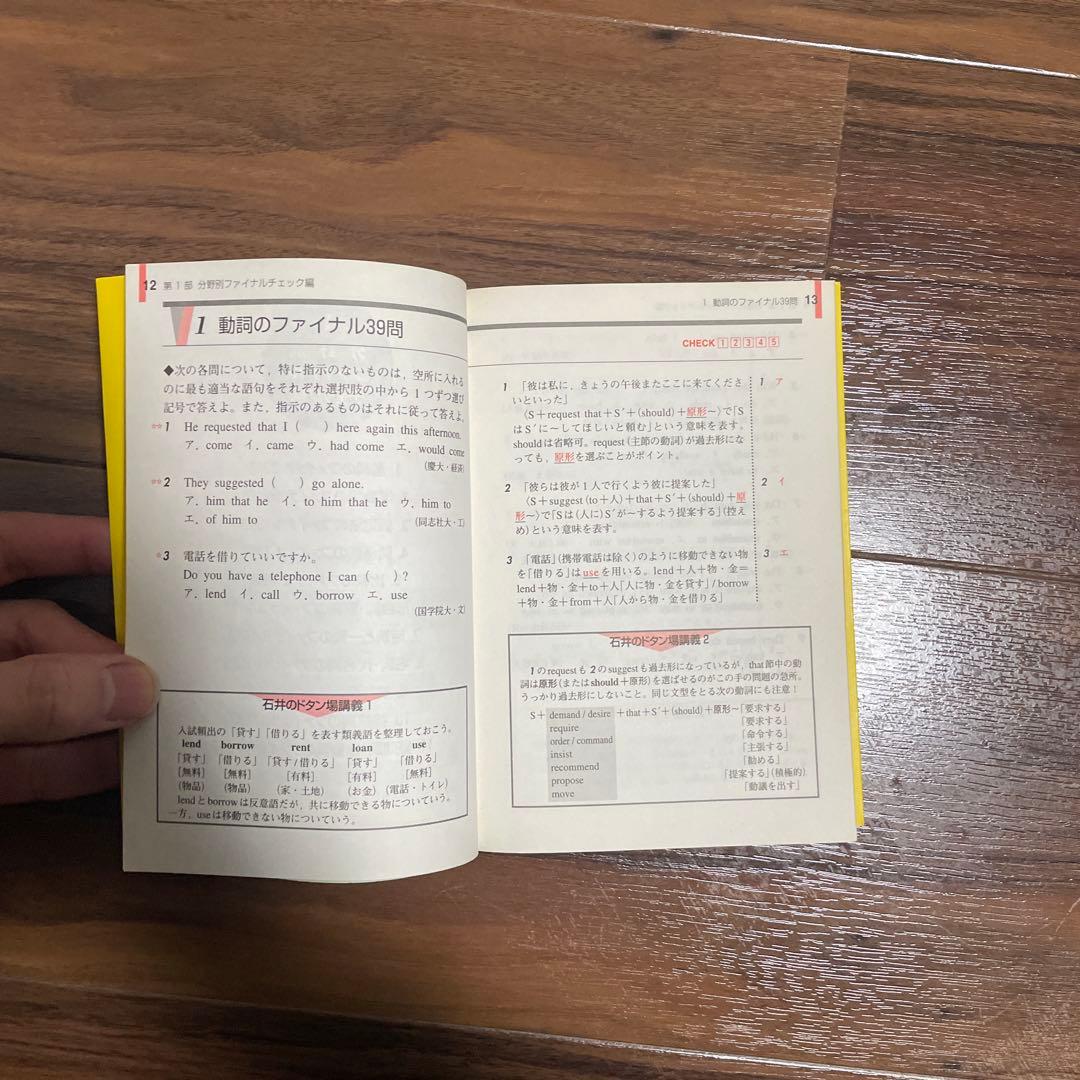 12 第1部 分野別ファイナルチェック編
1 動詞のファイナル39問
◆次の各問について，特に指示のないものは，空所に入れる
のに最も適当な語句をそれぞれ選択肢の中から1つずつ選び
記号で答えよ。また，指示のあるものはそれに従って答えよ。
☆☆1 He requested that I (　　) here again this afternoon.
ア．come イ．came ウ．had come エ．would come
（慶大・経済）
☆☆2 They suggested (　　) go alone.
ア．him that he イ．to him that he ウ．him to
エ．of him to
（同志社大・工）
☆3 電話を借りていいですか。
Do you have a telephone I can (　　)?
ア．lend イ．call ウ．borrow エ．use
（国学院大・文）
石井のドタン場講義1
入試頻出の「貸す」「借りる」を表す類義語を整理しておこう。
lend borrow rent loan use
「貸す」「借りる」「貸す/借りる」「貸す」「借りる」
［無料］［無料］［有料］［有料］［無料］
（物品）（物品）（家・土地）（お金）（電話・トイレ）
lendとborrowは反意語だが，共に移動できる物についていう。
一方，useは移動できない物についていう。
1 動詞のファイナル39問 13
CHECK 1 2 3 4 5
1 「彼は私に，きょうの午後またここに来てくださ
いといった」
〈S＋request that＋S′＋(should)＋原形～〉で「S
はS′に～してほしいと頼む」という意味を表す。
shouldは省略可。request（主節の動詞）が過去形にな
っても，原形を選ぶことがポイント。
1 ア
2 「彼らは彼が1人で行くよう彼に提案した」
〈S＋suggest (to＋人)＋that＋S′＋(should)＋原
形～〉で「Sは(人に)S′が～するよう提案する」（控え
め）という意味を表す。
2 イ
3 「電話」（携帯電話は除く）のように移動できない物
を「借りる」はuseを用いる。lend＋人＋物・金＝
lend＋物・金＋to＋人「人に物・金を貸す」/borrow
＋物・金＋from＋人「人から物・金を借りる」
3 エ
石井のドタン場講義2
1のrequestも2のsuggestも過去形になっているが，that節中の動
詞は原形（またはshould＋原形）を選ばせるのがこの手の問題の急所。
うっかり過去形にしないこと。同じ文型をとる次の動詞にも注意！
S＋ demand / desire ＋that＋S′＋(should)＋原形～「要求する」
require 「要求する」
order / command 「命令する」
insist 「主張する」
recommend 「勧める」
propose 「提案する」（積極的）
move 「動議を出す」